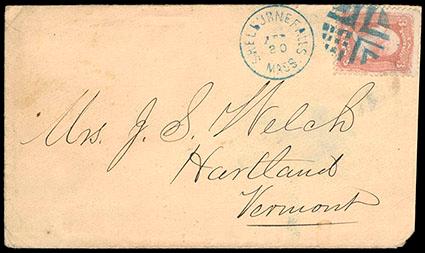 SHELBURNE FALLS
20
MASS.
Mrs. J. S. Welch
Hartland
Vermont